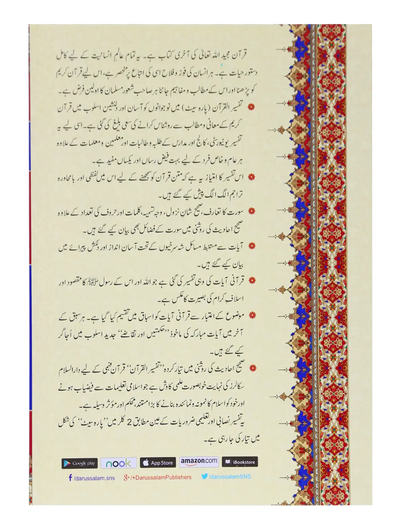 قرآن مجید اللہ تعالیٰ کی آخری کتاب ہے۔ یہ تمام عالمِ انسانیت کے لیے کامل
دستورِ حیات ہے۔ ہر انسان کی فوز و فلاح اسی کی اتباع پر منحصر ہے، اس لیے قرآن کریم
کو پڑھنا اور اس کے مطالب و مفاہیم جاننا ہر صاحبِ شعور مسلمان کا اولین فرض ہے۔
تفسیر القرآن (پارہ سیٹ) میں نوجوانوں کو آسان اور دلنشین اسلوب میں قرآن
کریم کے معانی و مطالب سے روشناس کرانے کی سعیِ بلیغ کی گئی ہے۔ اسی لیے یہ
تفسیر یونیورسٹی، کالج اور مدارس کے طلبہ و طالبات اور معلمین و معلمات کے علاوہ
ہر عام و خاص فرد کے لیے بہت فیض رساں اور یکساں مفید ہے۔
اس تفسیر کا امتیاز یہ ہے کہ متن قرآن کو سمجھنے کے لیے اس میں لفظی اور بامحاورہ
تراجم الگ الگ پیش کیے گئے ہیں۔
سورت کا تعارف، صحیح شانِ نزول، وجہ تسمیہ، کلمات اور حروف کی تعداد کے علاوہ
صحیح احادیث کی روشنی میں سورت کے فضائل بھی بیان کیے گئے ہیں۔
آیات سے مستنبط مسائل شہ سرخیوں کے تحت آسان انداز اور دلکش پیرائے میں
بیان کیے گئے ہیں۔
قرآنی آیات کی وہی تفسیر کی گئی ہے جو اللہ اور اس کے رسول ﷺ کا مقصود اور
اسلاف کرام کی بصیرت کا عکس ہے۔
موضوع کے اعتبار سے قرآنی آیات کو اسباق میں تقسیم کیا گیا ہے۔ ہر سبق کے
آخر میں آیات مبارکہ کی ماخوذ "حکمتیں اور تقاضے" جدید اسلوب میں اُجاگر
کیے گئے ہیں۔
صحیح احادیث کی روشنی میں تیار کردہ "تفسیر القرآن" قرآن فہمی کے لیے دارالسلام
سکالرز کی نہایت خوبصورت علمی کاوش ہے جو اسلامی تعلیمات سے فیضیاب ہونے
اور خود کو اسلام کا نمونہ و نمائندہ بنانے کا بڑا مستند، محکم اور مؤثر وسیلہ ہے۔
یہ تفسیر نصابی اور تعلیمی ضروریات کے عین مطابق 2 کلر میں "پارہ سیٹ" کی شکل
میں تیار کی جا رہی ہے۔
Google play nook App Store amazon.com iBookstore
/darussalam.sns /+DarussalamPublishers /darussalamSNS